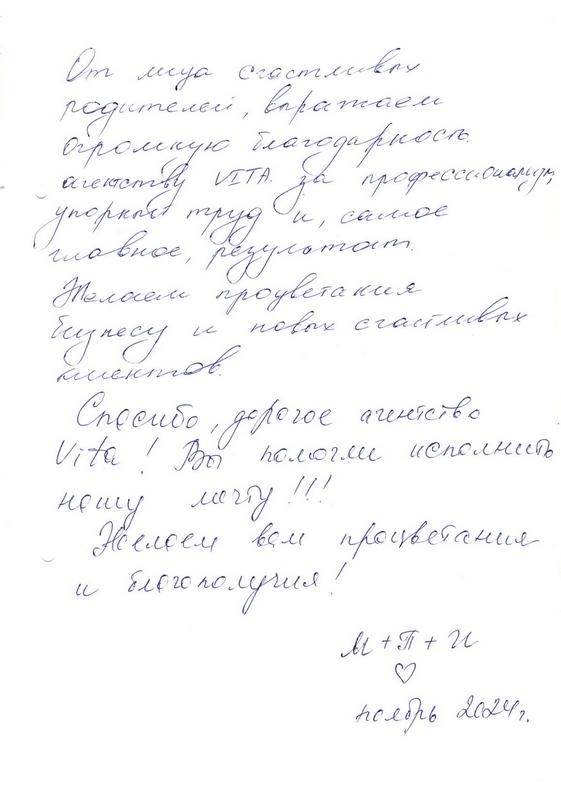 От лица счастливых
родителей, выражаем
огромную благодарность
агентству VITA за профессионализм,
упорный труд и, самое
главное, результат.
Желаем процветания
бизнесу и новых счастливых
клиентов.
Спасибо, дорогое агентство
Vita! Вы помогли исполнить
нашу мечту!!!
Желаем вам процветания
и благополучия!
М + П + И
♡
ноябрь 2024г.